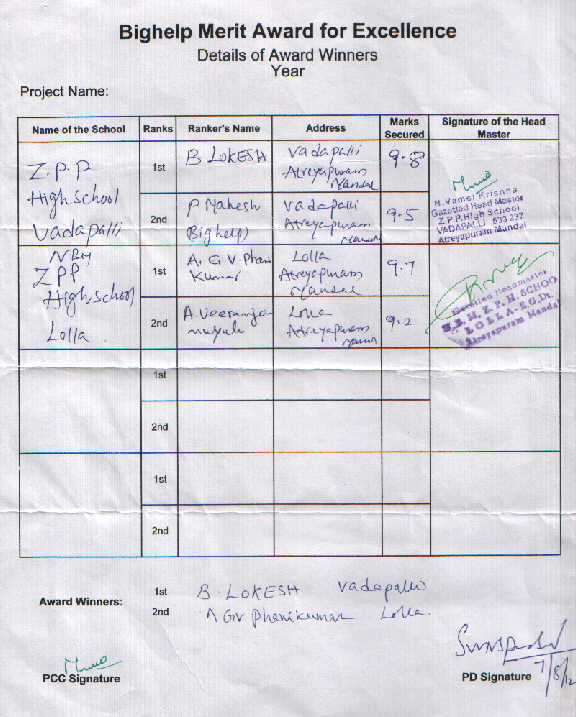 Bighelp Merit Award for Excellence
Details of Award Winners
Year
Project Name:
Name of the School Ranks Ranker's Name Address Marks Secured Signature of the Head Master
Z.P.P
High School
Vadapalli
1st B LOKESH Vadapalli
Atreyapuram
Mandal
9.8
2nd P Mahesh
(Bighelp)
Vadapalli
Atreyapuram
Mandal
9.5
N. Vamsi Krishna
Gazetted Head Master
Z.P.P.High School
VADAPALLI 533 237
Atreyapuram Mandal
ZPP
High School
Lolla
1st A. G V Phani
Kumar
Lolla
Atreyapuram
Mandal
9.7
2nd A. Veeranja
Lolla
Atreyapuram
Mandal
9.2
Z. P. H. SCHOO
LOLLA-E.G.Dt.
Atreyapuram Mandal
1st
2nd
1st
2nd
Award Winners:
1st B. LOKESH Vadapalli
2nd A GV Phanikumar Lolla.
PCC Signature
PD Signature 7/8/12